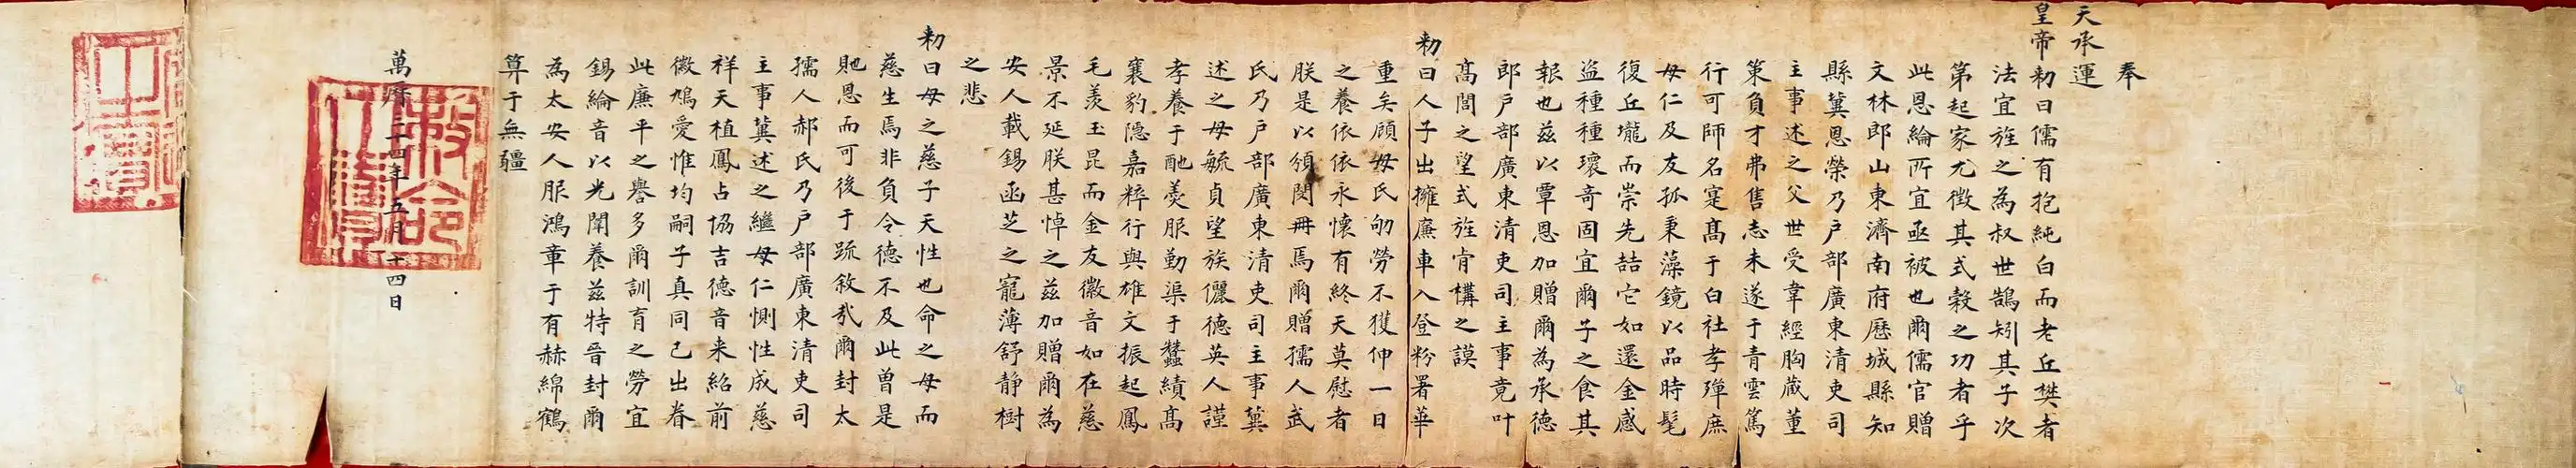 奉
天承運
皇帝勑曰儒有抱純白而老丘樊者
法宜旌之為叔世鵠矧其子次
第起家尤徵其式穀之功者乎
此恩綸所宜亟被也爾儒官贈
文林郎山東濟南府歷城縣知
縣冀恩榮乃戶部廣東清吏司
主事述之父世受韋經胸蔵董
策負才弗售志未遂于青雲篤
行可師名寔髙于白社孝殫庶
母仁及友孤秉藻鏡以品時髦
復丘壠而崇先喆它如還金感
盜種種瓌奇固宜爾子之食其
報也茲以覃恩加贈爾為承德
郎戶部廣東清吏司主事竟叶
髙閭之望式旌肯構之謨
勑曰人子出擁廉車入登粉署華
重矣顧母氏劬勞不獲伸一日
之養依依永懷有終天莫慰者
朕是以頒閔冊焉爾贈孺人武
氏乃戶部廣東清吏司主事冀
述之母毓貞望族儷德英人謹
孝養于酏羹服勤渠于蠶績髙
襄豹隱嘉粹行與雄文振起鳳
毛羨玉昆而金友徽音如在慈
景不延朕甚悼之茲加贈爾為
安人載錫函芝之寵薄舒静樹
之悲
勑曰母之慈子天性也命之母而
慈生焉非負令德不及此曾是
貤恩而可後于䟽敘㢤爾封太
孺人郝氏乃戶部廣東清吏司
主事冀述之繼母仁惻性成慈
祥天植鳳占協吉德音来紹前
徽鳲愛惟均嗣子真同己出眷
此廉平之譽多爾訓育之勞宜
錫綸音以光闈養茲特晉封爾
為太安人服鴻章于有赫綿鶴
算于無疆
萬曆三十四年五月十四日
敕命之寶